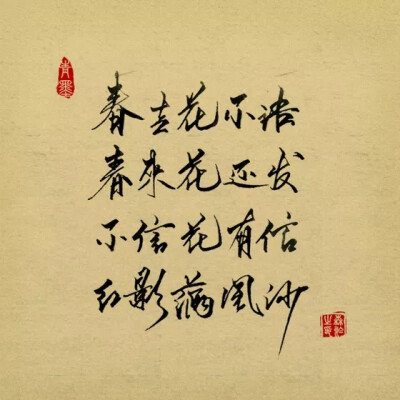 春去花不语
春来花还发
不信花有信
红影满风沙
青墨